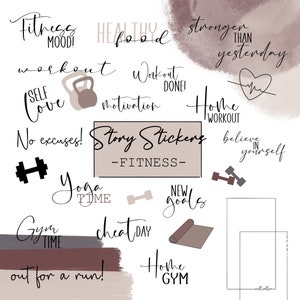 Fitness
MOOD!
HEALTHY
food
stronger
THAN
yesterday
workout
Workout
DONE!
SELF
Love
motivation
Home
WORKOUT
No excuses!
Story Stickers
-FITNESS-
believe
IN
yourself
Yoga
TIME
NEW
goals
Gym
TIME
cheat DAY
out for a run!
Home
GYM